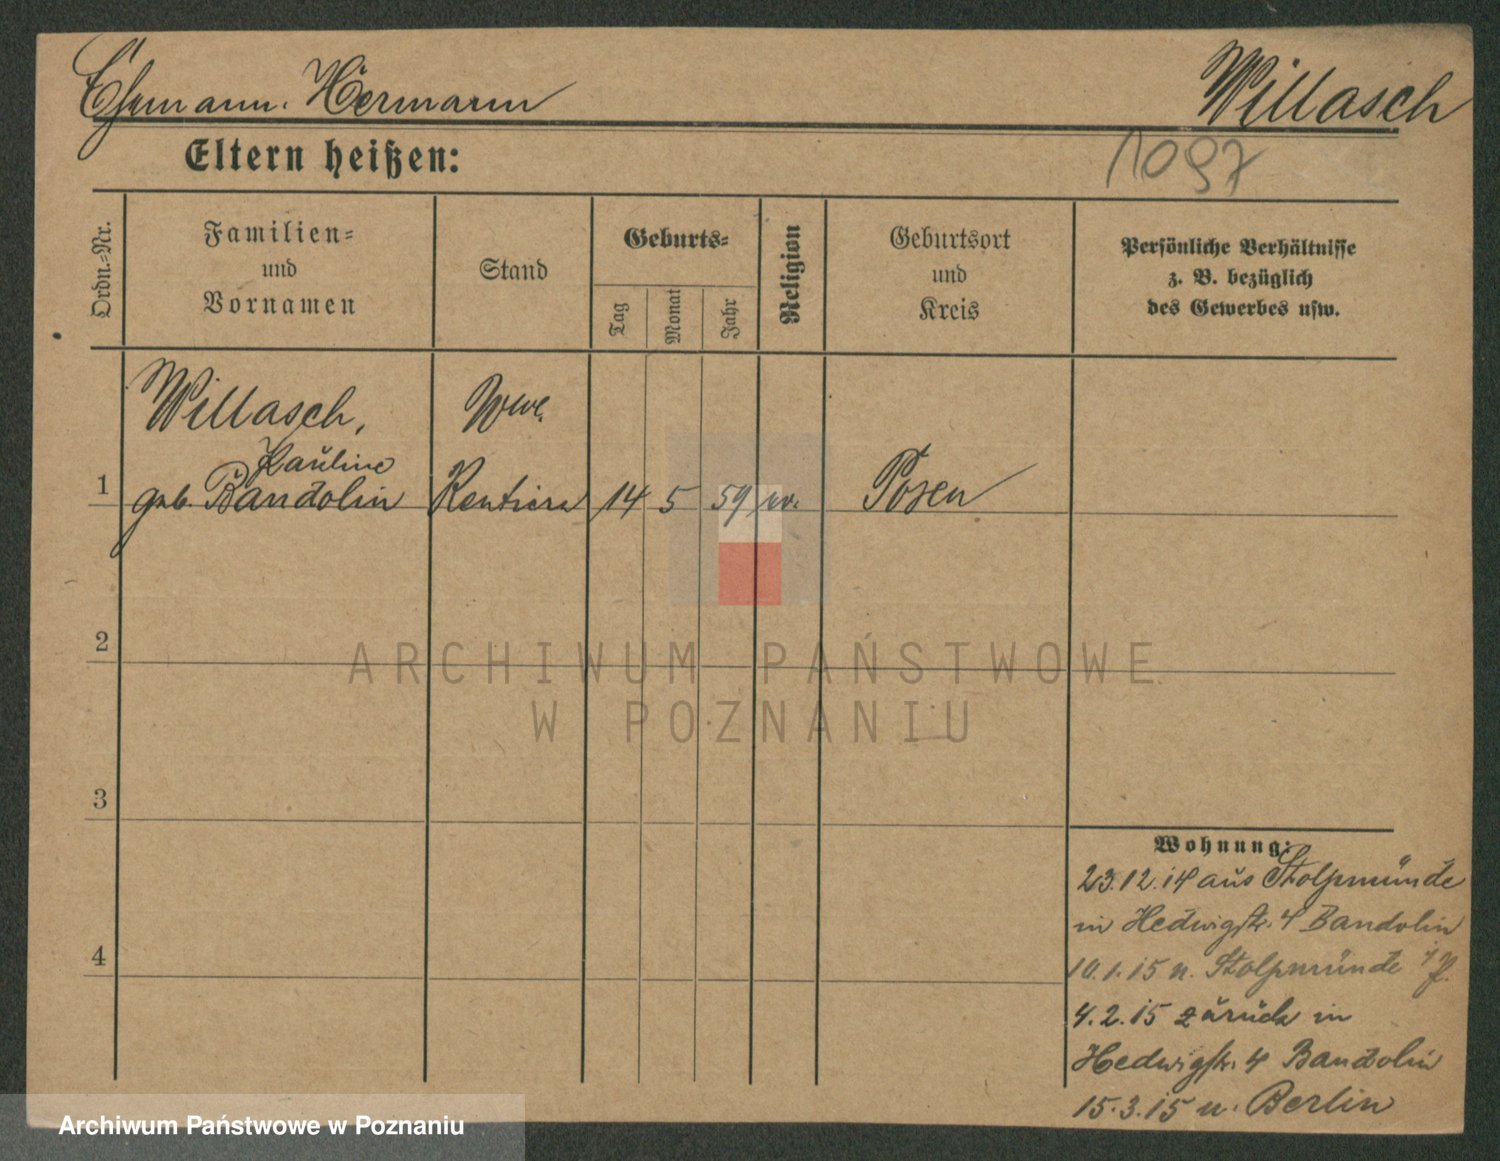 Ehemann. Hermann
Willasch
Eltern heißen:
1097
Ordn.-Nr.
Familien-
und
Vornamen
Stand
Geburts-
Tag
Monat
Jahr
Religion
Geburtsort
und
Kreis
Persönliche Verhältnisse
z. B. bezüglich
des Gewerbes usw.
Willasch, Wwe.
Pauline
1 geb. Bandolin Rentiere 14 5 59 ev. Posen
2
3
4
Wohnung:
23.12.14 aus Stolpmünde
in Hedwigstr. 4 Bandolin
10.1.15 n. Stolpmünde i/P.
4.2.15 zurück in
Hedwigstr. 4 Bandolin
15.3.15 n. Berlin
ARCHIWUM PAŃSTWOWE
W POZNANIU
Archiwum Państwowe w Poznaniu